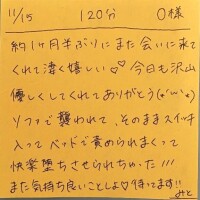 11/15 120分 O様
約1ヶ月半ぶりにまた会いに来て
くれて凄く嬉しい♡♡ 今日も沢山
優しくしてくれてありがとう(*´ω`*)
ソファで襲われて、そのままスイッチ
入ってベッドで責められまくって
快楽堕ちさせられちゃった!!!
また気持ち良いことしよ♡待ってます!!